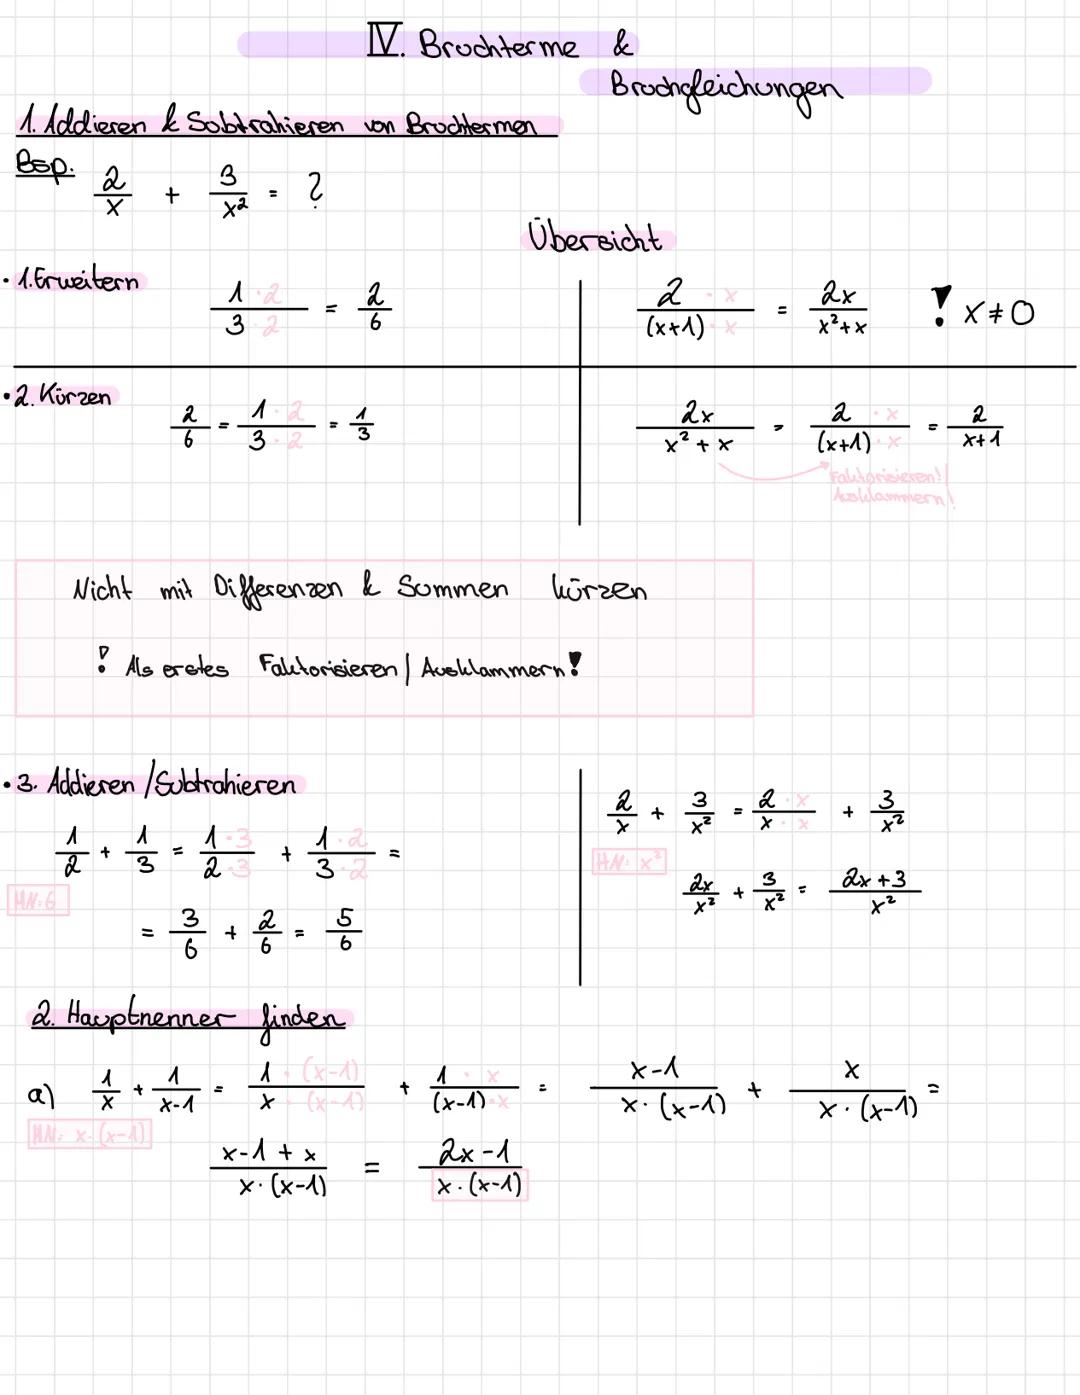 IV. Bruchterme &
Bruchgleichungen
1. Addieren & Subtrahieren von Bruchtermen
Bsp. 2/x + 3/x² = ?
Übersicht
• 1. Erweitern
1·2/3·2 = 2/6
2·x/(x+1)·x = 2x/x²+x ! x≠0
• 2. Kürzen
2/6 = 1·2/3·2 = 1/3
2x/x²+x = 2·x/(x+1)·x = 2/x+1
Faktorisieren!
Ausklammern!
Nicht mit Differenzen & Summen kürzen
! Als erstes Faktorisieren | Ausklammern!
• 3. Addieren / Subtrahieren
1/2 + 1/3 = 1·3/2·3 + 1·2/3·2 =
HN: 6
= 3/6 + 2/6 = 5/6
2/x + 3/x² = 2·x/x·x + 3/x²
HN: x²
2x/x² + 3/x² = 2x+3/x²
2. Hauptnenner finden
a) 1/x + 1/x-1 = 1·(x-1)/x·(x-1) + 1·x/(x-1)·x = x-1/x·(x-1) + x/x·(x-1) =
HN: x·(x-1)
x-1+x/x·(x-1) = 2x-1/x·(x-1)